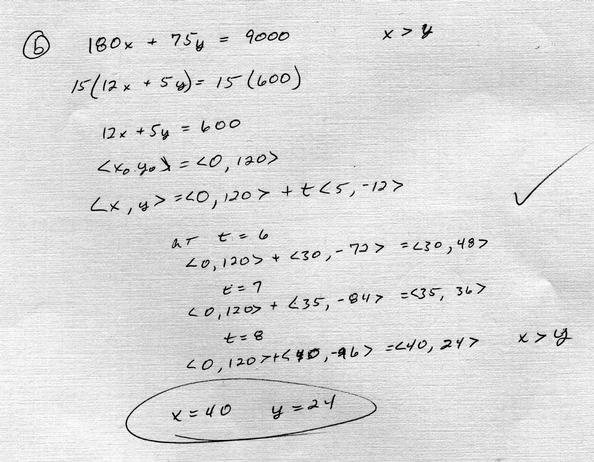 ⑥ 180x + 75y = 9000 x > y
15(12x + 5y) = 15(600)
12x + 5y = 600
<x₀ y₀> = <0, 120>
<x, y> = <0, 120> + t<5, -12>
AT t = 6
<0, 120> + <30, -72> = <30, 48>
t = 7
<0, 120> + <35, -84> = <35, 36>
t = 8
<0, 120> + <40, -96> = <40, 24> x > y
x = 40 y = 24